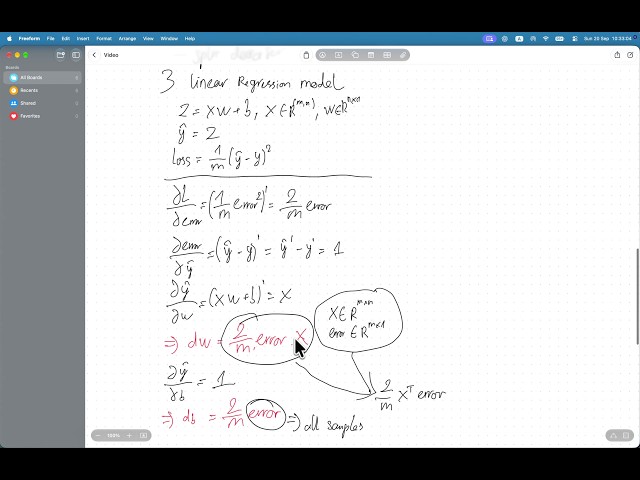 Freeform File Edit View Insert Format Arrange Window Help
Sun 20 Sep 10:33:04
Boards
All Boards
Recents
Shared
Favorites
Video
3 linear Regression model
Z = XW + b, X ∈ R^(m,n), W ∈ R^n×1
ŷ = Z
Loss = 1/m (ŷ - y)²
∂L/∂error = (1/m error²)' = 2/m error
∂error/∂ŷ = (ŷ - y)' = ŷ' - y' = 1
∂ŷ/∂w = (XW + b)' = X
X ∈ R^m×n
error ∈ R^m×1
⇒ dw = 2/m error . X
2/m X^T error
∂ŷ/∂b = 1
⇒ db = 2/m error ⇒ all samples
100%